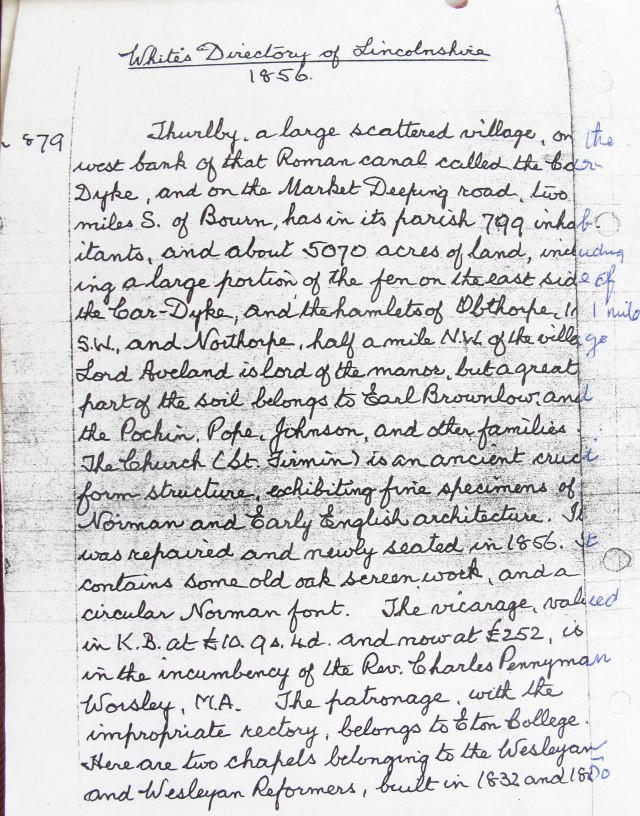 White's Directory of Lincolnshire
1856.
879 Thurlby, a large scattered village, on the
west bank of that Roman canal called the Car-
Dyke, and on the Market Deeping road, two
miles S. of Bourn, has in its parish 799 inhab-
itants, and about 5070 acres of land, including
ing a large portion of the fen on the east side of
the Car-Dyke, and the hamlets of Obthorpe, 1 mile
S.W., and Northorpe, half a mile N.W. of the village
Lord Aveland is lord of the manor, but a great
part of the soil belongs to Earl Brownlow, and
the Pochin, Pope, Johnson, and other families.
The Church (St. Firmin) is an ancient cruci
form structure, exhibiting fine specimens of
Norman and Early English architecture. It
was repaired and newly seated in 1856. It
contains some old oak screen work, and a
circular Norman font. The vicarage, valued
in K.B. at £10. 9s. 4d. and now at £252, is
in the incumbency of the Rev. Charles Pennyman
Worsley, M.A. The patronage, with the
impropriate rectory, belongs to Eton College.
Here are two chapels belonging to the Wesleyan
and Wesleyan Reformers, built in 1832 and 1850